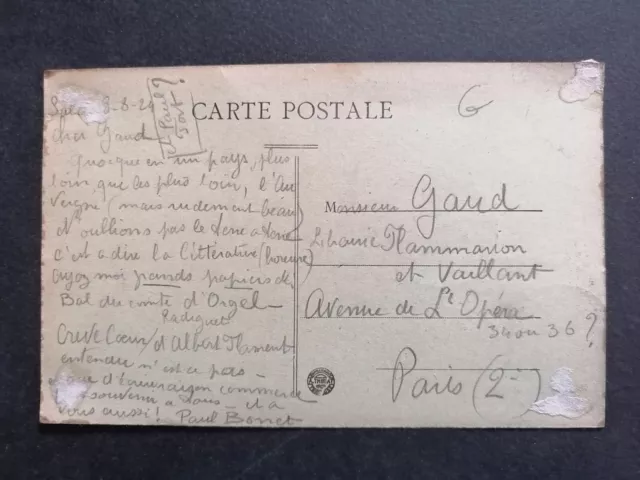 8-8-24
et Paul
Fort?
CARTE POSTALE
G
Cher Gaud
Quoique en un pays, plus
loin que les plus loin, l'Au
vergne (mais rudement beau)
N'oullions pas le terre à terre
c'est à dire la littérature (horreur)
grands papiers de
Bal du comte d'Orgel
Radiguet
Creve Coeur d'Albert Flament
entendu n'est ce pas -
commerce
souvenir à tous - et à
vous aussi! Paul Bonet
Monsieur Gaud
Librairie Flammarion
et Vaillant
Avenue de L'Opéra
34 ou 36?
Paris (2-